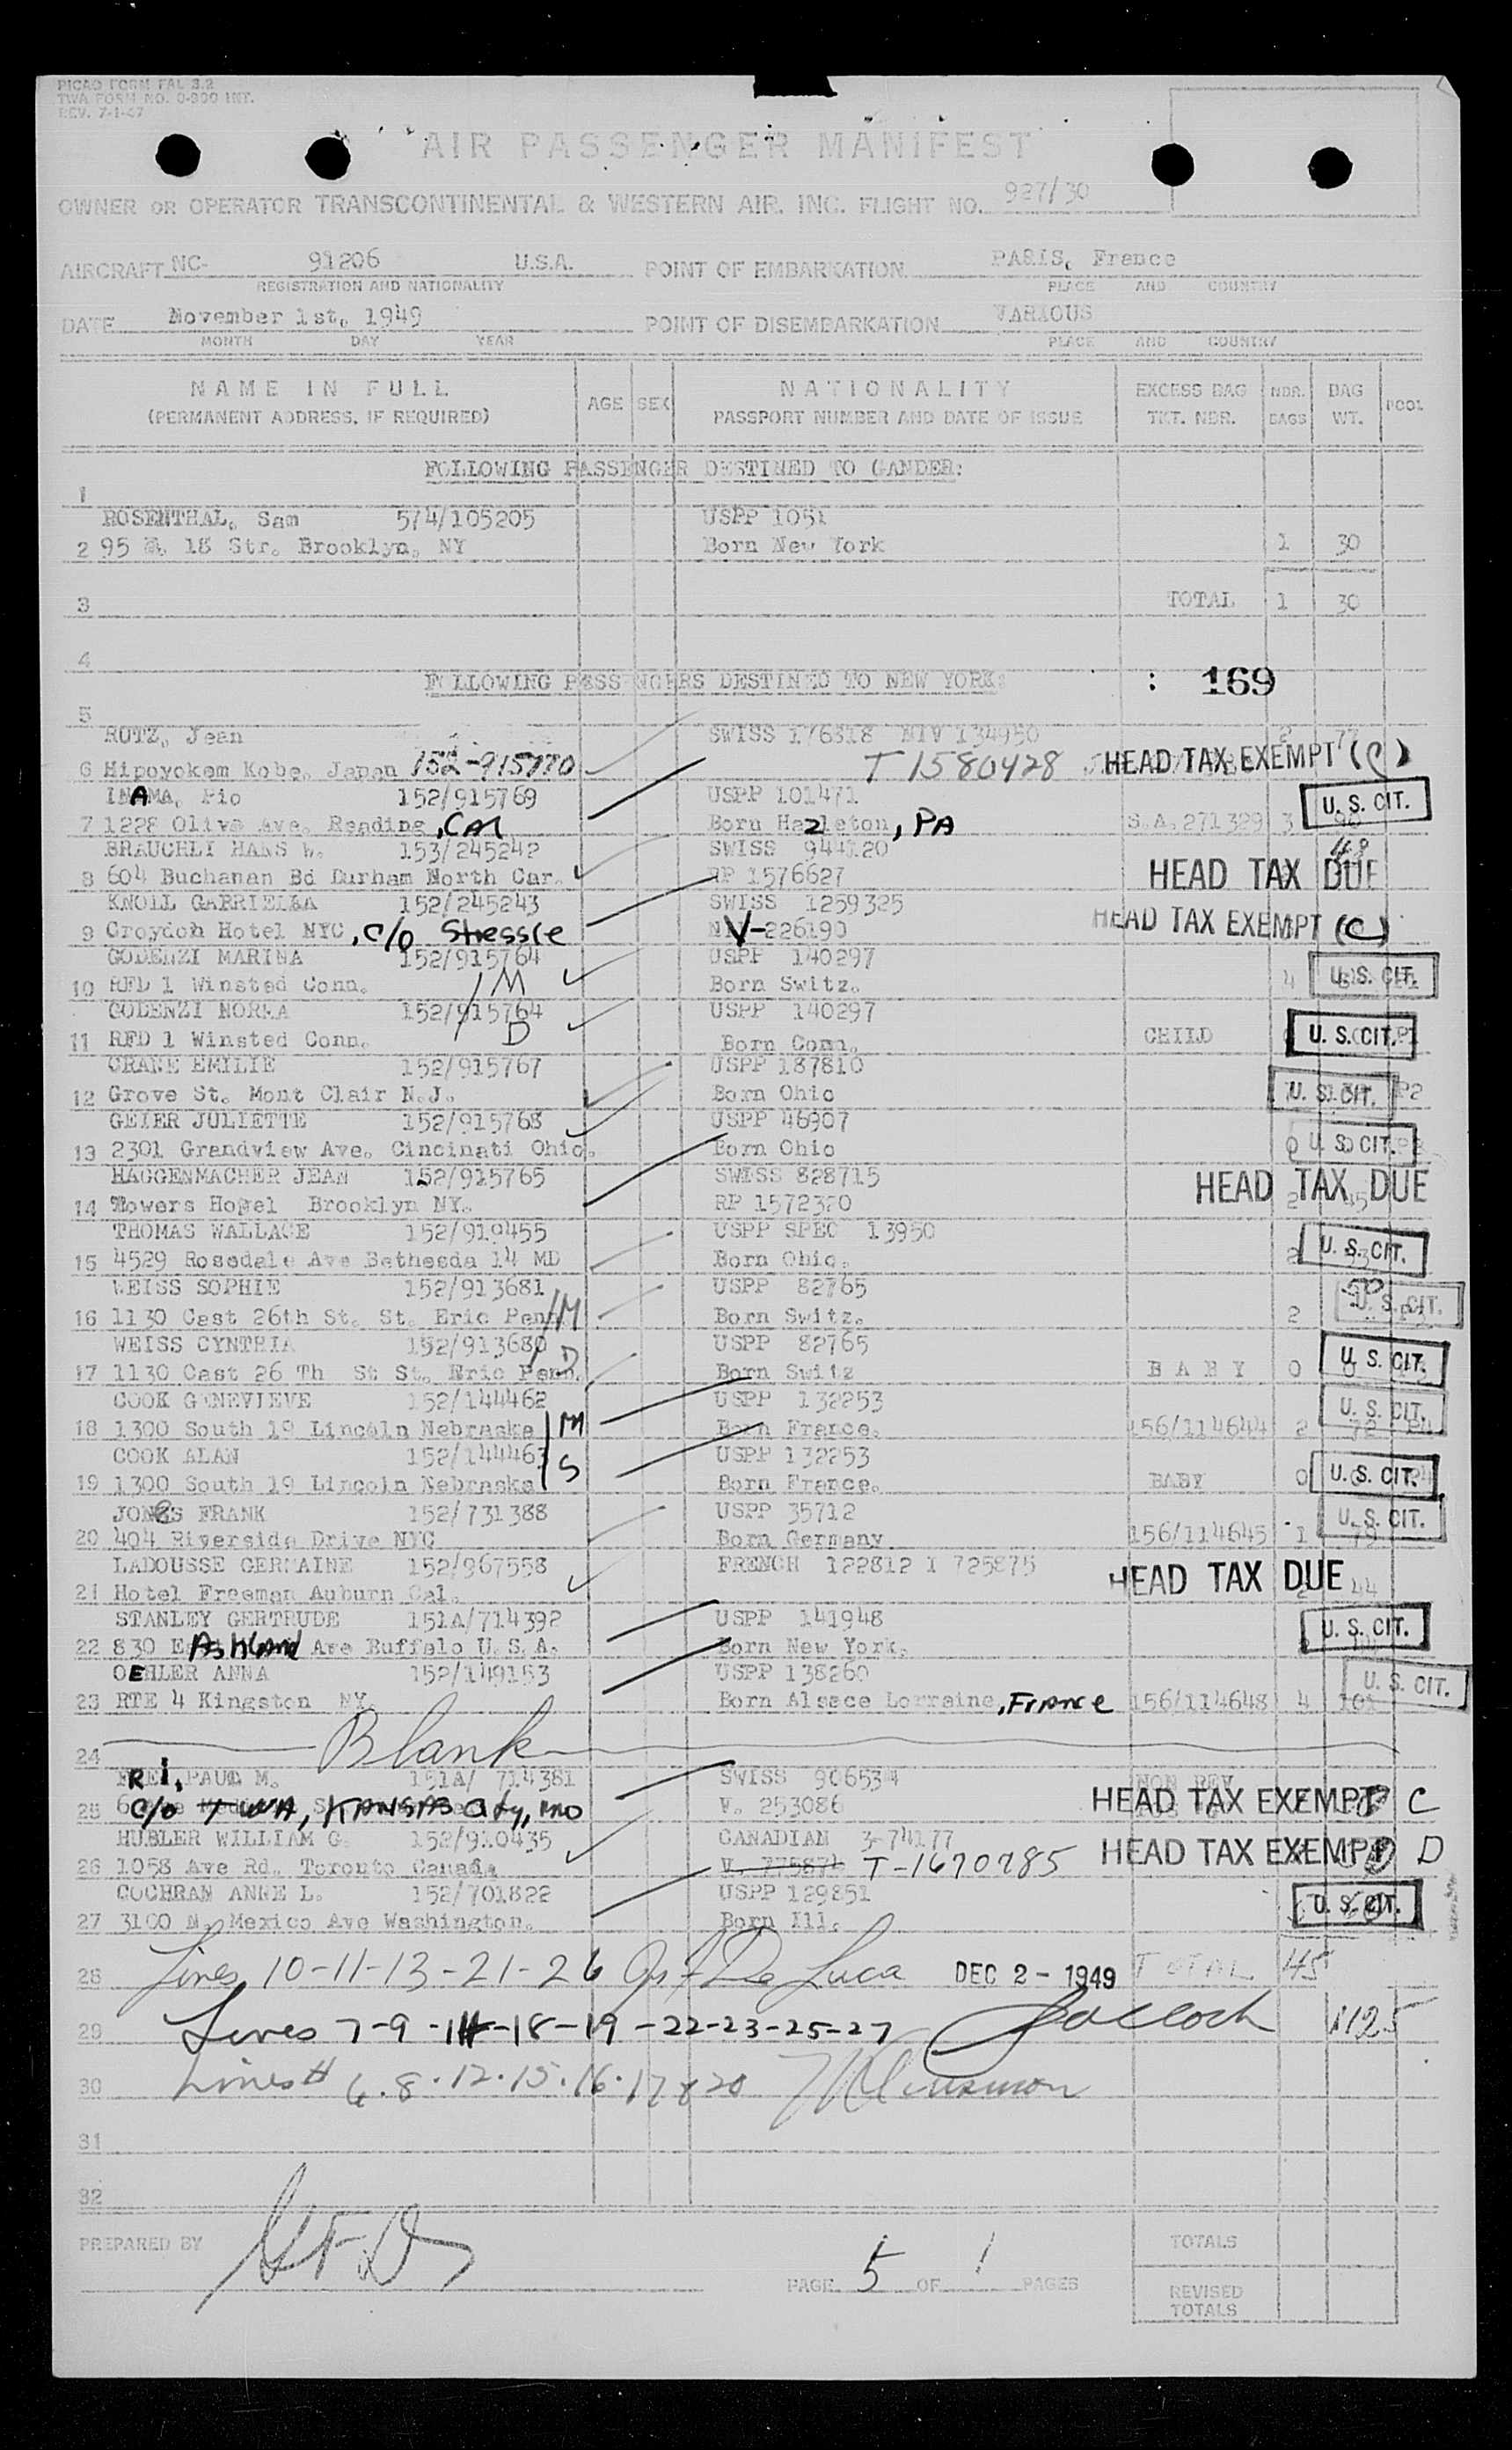 PICAO FORM FAL 3.2
TWA FORM NO. O-800 INT.
REV. 7-1-47
AIR PASSENGER MANIFEST
OWNER OR OPERATOR TRANSCONTINENTAL & WESTERN AIR, INC. FLIGHT NO. 927/30
AIRCRAFT NC- 91206 U.S.A. POINT OF EMBARKATION PARIS, France
REGISTRATION AND NATIONALITY PLACE AND COUNTRY
DATE November 1st, 1949 POINT OF DISEMBARKATION VARIOUS
MONTH DAY YEAR PLACE AND COUNTRY
NAME IN FULL AGE SEX NATIONALITY EXCESS BAG NBR. BAG POOL
(PERMANENT ADDRESS, IF REQUIRED) PASSPORT NUMBER AND DATE OF ISSUE TKT. NBR. BAGS WT.
FOLLOWING PASSENGER DESTINED TO GANDER:
1
ROSENTHAL, Sam 5/4/105205 USPP 1051
2 95 18 Str. Brooklyn, NY Born New York 1 30
3 TOTAL 1 30
4
FOLLOWING PASSENGERS DESTINED TO NEW YORK: : 169
5
ROTZ, Jean SWISS 176318 NIV 134950 2 77
6 Hipoyokem Kobe, Japan 152-915770 T 1580428 HEAD TAX EXEMPT (C)
INAMA, Pio 152/915769 USPP 101471 U. S. CIT.
7 1228 Olive Ave. Reading, CAL Born Hazleton, PA S.A. 271329 3 90
BRAUCHLI HANS W. 153/245242 SWISS 944120 48
8 604 Buchanan Bd Durham North Car. RP 1576627 HEAD TAX DUE
KNOLL GABRIELLA 152/245243 SWISS 1259325
9 Croydon Hotel NYC, c/o Stressle V-226190 HEAD TAX EXEMPT (C)
GODENZI MARINA 152/915764 USPP 140297
10 RFD 1 Winsted Conn. M Born Switz. 4 U. S. CIT.
GODENZI NORMA 152/915764 USPP 140297
11 RFD 1 Winsted Conn. D Born Conn. CHILD U. S. CIT. P1
CRANE EMILIE 152/915767 USPP 187810
12 Grove St. Mont Clair N.J. Born Ohio U. S. CIT. P2
GEIER JULIETTE 152/915768 USPP 46907
13 2301 Grandview Ave. Cincinati Ohio. Born Ohio 0 U. S. CIT.
HAGGENMACHER JEAN 152/915765 SWISS 828715 HEAD TAX DUE
14 Towers Hopel Brooklyn NY. RP 1572320 2 45
THOMAS WALLACE 152/919455 USPP SPEC 13950
15 4529 Rosedale Ave Bethesda 14 MD Born Ohio. 2 U. S. CIT.
WEISS SOPHIE 152/913681 USPP 82765 50
16 1130 Cast 26th St. St. Eric Penn M Born Switz. 2 U. S. CIT.
WEISS CYNTHIA 152/913680 USPP 82765
17 1130 Cast 26 Th St St. Eric Penn. D Born Switz BABY 0 U. S. CIT.
COOK GENEVIEVE 152/144462 USPP 132253 U. S. CIT.
18 1300 South 19 Lincoln Nebraska M Born France. 156/114644 2 72
COOK ALAN 152/144463 USPP 132253
19 1300 South 19 Lincoln Nebraska S Born France. BABY 0 U. S. CIT.
JONES FRANK 152/731388 USPP 35712 U. S. CIT.
20 404 Riverside Drive NYC Born Germany 156/114645 1 75
LADOUSSE GERMAINE 152/967558 FRENCH 122812 I 725875 HEAD TAX DUE
21 Hotel Freeman Auburn Cal. 44
STANLEY GERTRUDE 151A/714392 USPP 141948 U. S. CIT.
22 830 Ashland Ave Buffalo U.S.A. Born New York.
OEHLER ANNA 152/149153 USPP 138260 U. S. CIT.
23 RTE 4 Kingston NY. Born Alsace Lorraine, France 156/114648 4 101
24 Blank
FREI, PAUL M. 151A/ 714381 SWISS 906534 NON REV
25 c/o TWA, KANSAS City, MO V. 253086 HEAD TAX EXEMPT C
HUBLER WILLIAM G. 152/910435 CANADIAN 3-74177
26 1058 Ave Rd. Toronto Canada T-1670785 HEAD TAX EXEMPT D
COCHRAN ANNE L. 152/701822 USPP 129851
27 3100 N. Mexico Ave Washington. Born Ill. U. S. CIT.
28 Lines 10-11-13-21-26 De Luca DEC 2 - 1949 TOTAL 45
29 Lines 7-9-14-18-19-22-23-25-27 1125
30 Lines # 6.8.12.15.16.17 & 20
31
32
PREPARED BY TOTALS
PAGE 5 OF 1 PAGES REVISED TOTALS